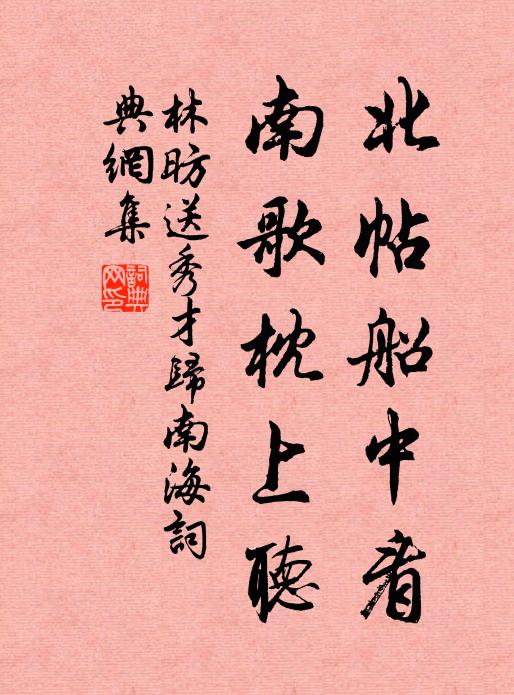 北帖船中看
南歌枕上聽
林昉送秀才歸南海詞
典網集
詞典
网印